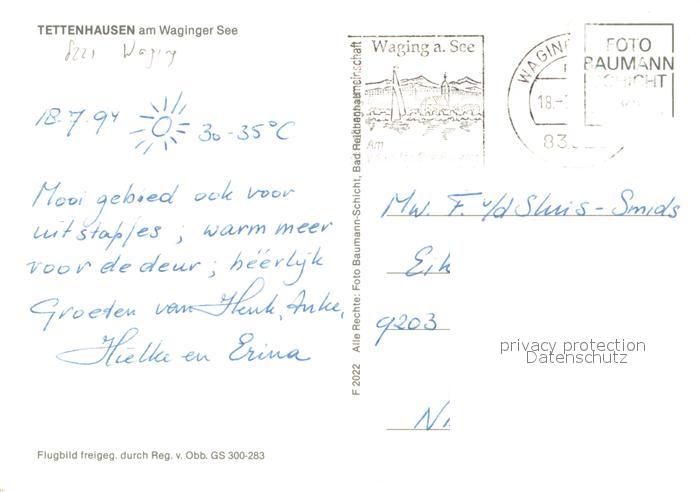 TETTENHAUSEN am Waginger See
8221 Waging
18.7.94 30-35°C
Mooi gebied ook voor
uitstapjes; warm meer
voor de deur; héérlijk
Groeten van Henk, Anke,
Hielke en Erina
Flugbild freigeg. durch Reg. v. Obb. GS 300-283
F 2022 Alle Rechte: Foto Baumann-Schicht, Bad Reichenhall
Waging a. See
Am
WAGING
18.-
83
FOTO
BAUMANN
SCHICHT
Mw. F. v/d Sluis-Smids
Eik
9203
privacy protection
Datenschutz
Ni